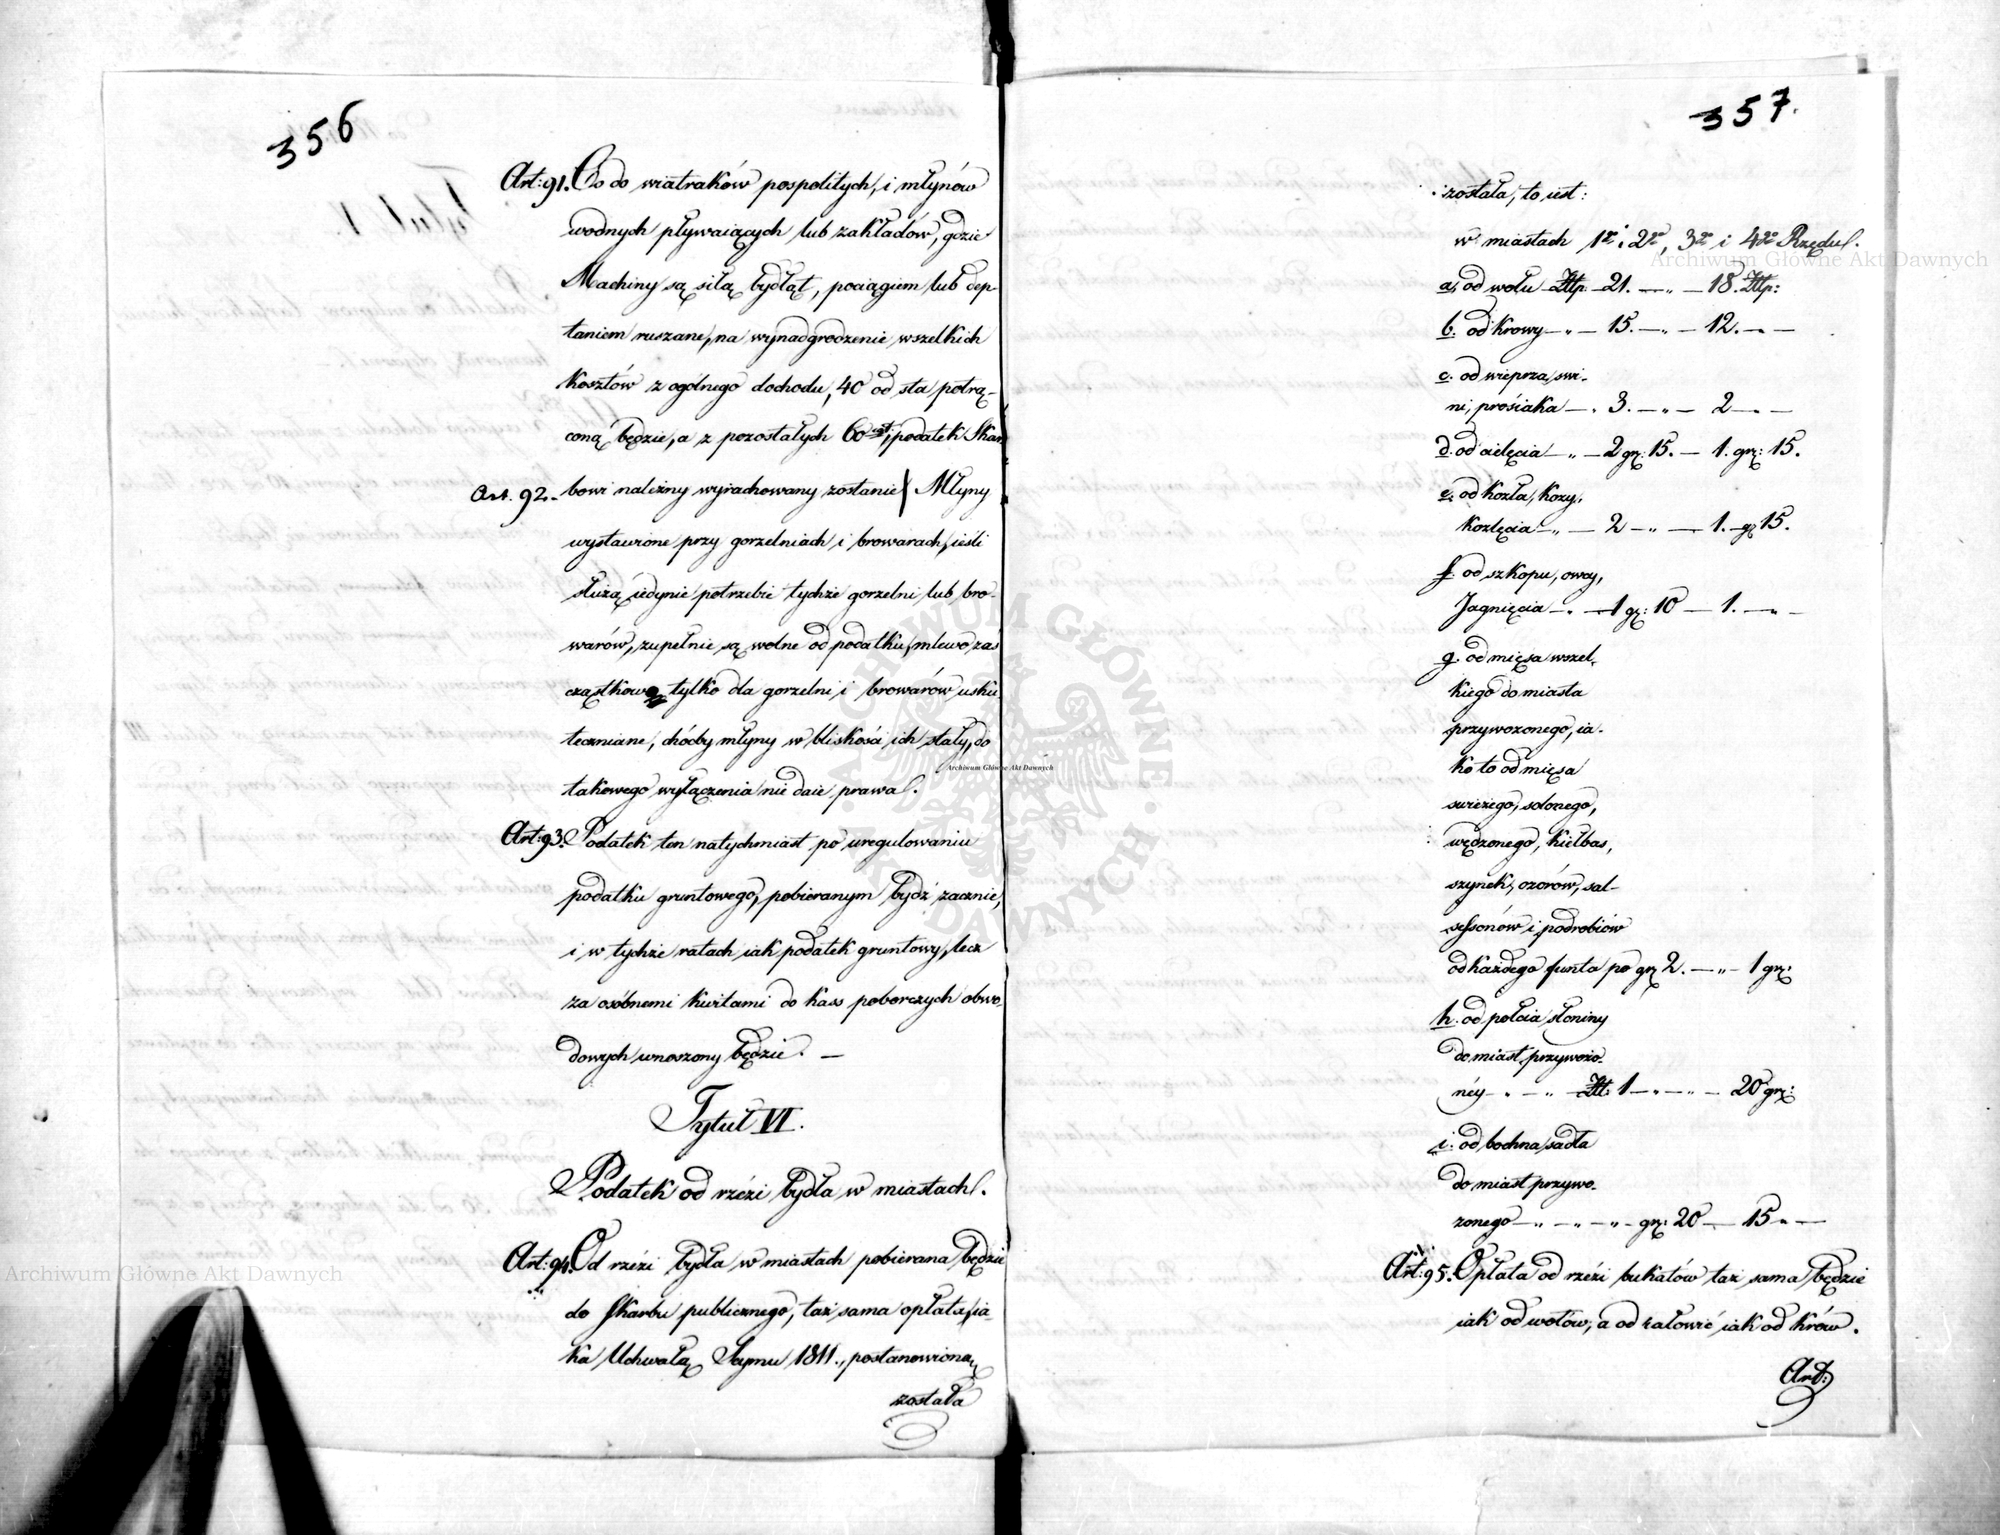 356
Art: 91. Co do wiatraków pospolitych, i młynów
wodnych pływaiących lub zakładów, gdzie
Machiny są siłą bydląt, pociągiem lub dep-
taniem ruszane, na wynadgrodzenie wszelkich
kosztów z ogólnego dochodu, 40 od sta potrą-
coną będzie, a z pozostałych 60ciu, podatek Skar
Art. 92. bowi należny wyrachowany zostanie Młyny
wystawione przy gorzelniach i browarach, ieśli
służą iedynie potrzebie tychże gorzelni lub bro-
warów, zupełnie są wolne od podatku, mlewo zaś
cząstkowe tylko dla gorzelni i browarów usku-
teczniane, chóćby młyny w bliskości ich stały, do
takowego wyłączenia nie daie prawa.
Art: 93. Podatek ten natychmiast po uregulowaniu
podatku gruntowego, pobieranym bydź zacznie,
i w tychże ratach iak podatek gruntowy, lecz
za osóbnemi kwitami do kass poborczych obwo-
dowych wnoszony będzie. —
Tytuł VI.
Podatek od rzézi bydła w miastach.
Art: 94. Od rzézi bydła w miastach pobierana będzie
do Skarbu publicznego, taż sama opłata, ia-
ka Uchwałą Seymu 1811., postanowioną
została
357.
została, to iest:
w miastach 1go i 2go, 3go i 4go Rzędu.
a, od wołu Złtp. 21. — „ — 18. Złtp:
b. od krowy — „ — 15. — „ — 12. — „ —
c. od wieprza, świ-
ni, prosiaka — „ 3. — „ — 2 — „ —
d. od cielęcia — „ — 2 gr: 15. — 1. gr: 15.
e. od kozła, kozy,
koźlęcia — „ — 2 — „ — 1. — gr 15.
f. od szkopu, owcy,
Jagnięcia — „ — 1 gr: 10 — 1. — „ —
g. od mięsa wszel-
kiego do miasta
przywozonego, ia-
ko to od mięsa
swieżego, solonego,
wędzonego, kiełbas,
szynek, ozorów, sal-
sessonów i podrobiów
od każdego funta po gr 2. — „ — 1 gr:
h. od połcia słoniny
do miast przywozo-
néy — „ — „ — Złt: 1 — „ — „ — 20 gr:
i. od bochna sadła
do miast przywo-
zonego — „ — „ — „ — gr: 20 — 15 „ —
Art: 95. Opłata od rzézi bukatów taż sama będzie
iak od wołów, a od iałowic iak od krów.
Art:
Archiwum Główne Akt Dawnych
Archiwum Główne Akt Dawnych
Archiwum Główne Akt Dawnych
ARCHIWUM GŁÓWNE AKT DAWNYCH